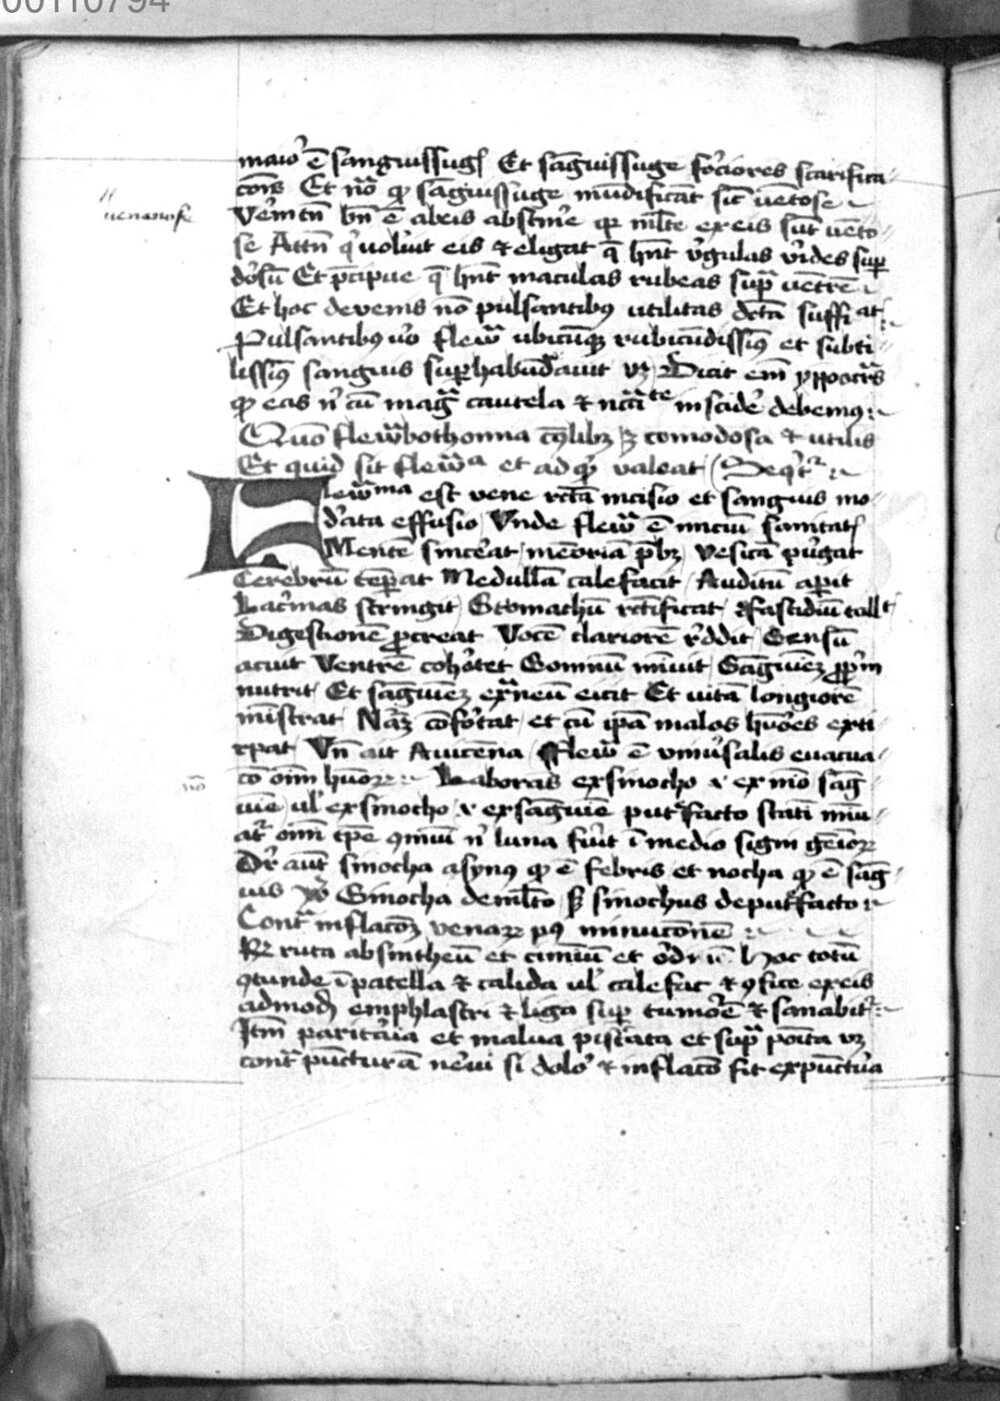 00110794
maior̄ ē sanguissug Et sāguissuge forciores scarifica
cōnis Et nōa qꝫ sāguissuge mūdificāt sic̄ uētose
venenose
Verūtn̄ bn̄ ē ab eis abstinē qꝛ ml̄te ex eis sūt uēto
se Attn̄ qͥ uolūit eis ⁊ eligat q̄ hn̄t ūgulas virides sup̄
dorsū Et p̄cipue q̄ hn̄t maculas rubeas supͣ uētrē
Et hoc de venis nō pulsantibꝰ utilitas dc̄ta suffiat
Pulsantibꝰ uͦo flewͣ ubicūqꝫ rubicūdissimꝰ et subti
lissimꝰ sanguis sup̄habūdauit Dicit em̄ ypocrͣs
qꝫ eas nͥ cū magͣ cautela ⁊ nc̄āte inscidē debemꝰ
flewͣbothomia comodosa ⁊ utilis
Et quid sit flewͣa et ad qͥd valeat Seqͥtͬ
Flewͣma est vene rc̄tā incisio et sanguis mo
derata effusio Vnde flewͣ ē iniciū sanitat
Mentē sincerat memōriā p̄bꝫ Vesicā purgat
Cerebrū tēp̄at Medullā calefacit Auditū apit
Lacͥmas stringit Stomachū rc̄tificat fastidiū tollt
Digestionē p̄creat Vocē clariorē rͤddit Sensū
acuit Ventrē cohortet Somnū minuit Sāguinē ꝓprīm
nutrit Et sāguinē exͣneū eicit Et uitā longiorē
mīstrat cōfortat et cū ip̄ā malos hūores exti
rpat Vn̄ ait Auicēna Flewͣ ē vniūsalis euacua
cō oīm hūoꝝ Laboras ex sinocho ex nīo sāg
nō
uīe ul̓ ex sinocho ex sāguine putͤfacto statī minu
atͬ omī tp̄e nͥ luna fūit ī medio signi gēioꝝ
Drͬ aūt sinocha a synꝰ qꝫ ē febris et nocha qꝫ ē sāg
uis Sinocha de ml̄to sꝫ sinochus de putͤfacto
Contͣ inflacōꝫ venaꝝ pꝰ minucōnē
Rͬ ruta absintheū et cīmīū et Hoc totū
ꝯtunde ī patella ⁊ calida ul̓ calefac ⁊ ꝯfice ex eis
ad modū emphlastri ⁊ liga sup̄ tumorē ⁊ sanabitͬ
Itm̄ paritaria et malua pistata et supͣ poīta
contͣ pūcturā nerui si dolor ⁊ inflacō fit ex pūctura